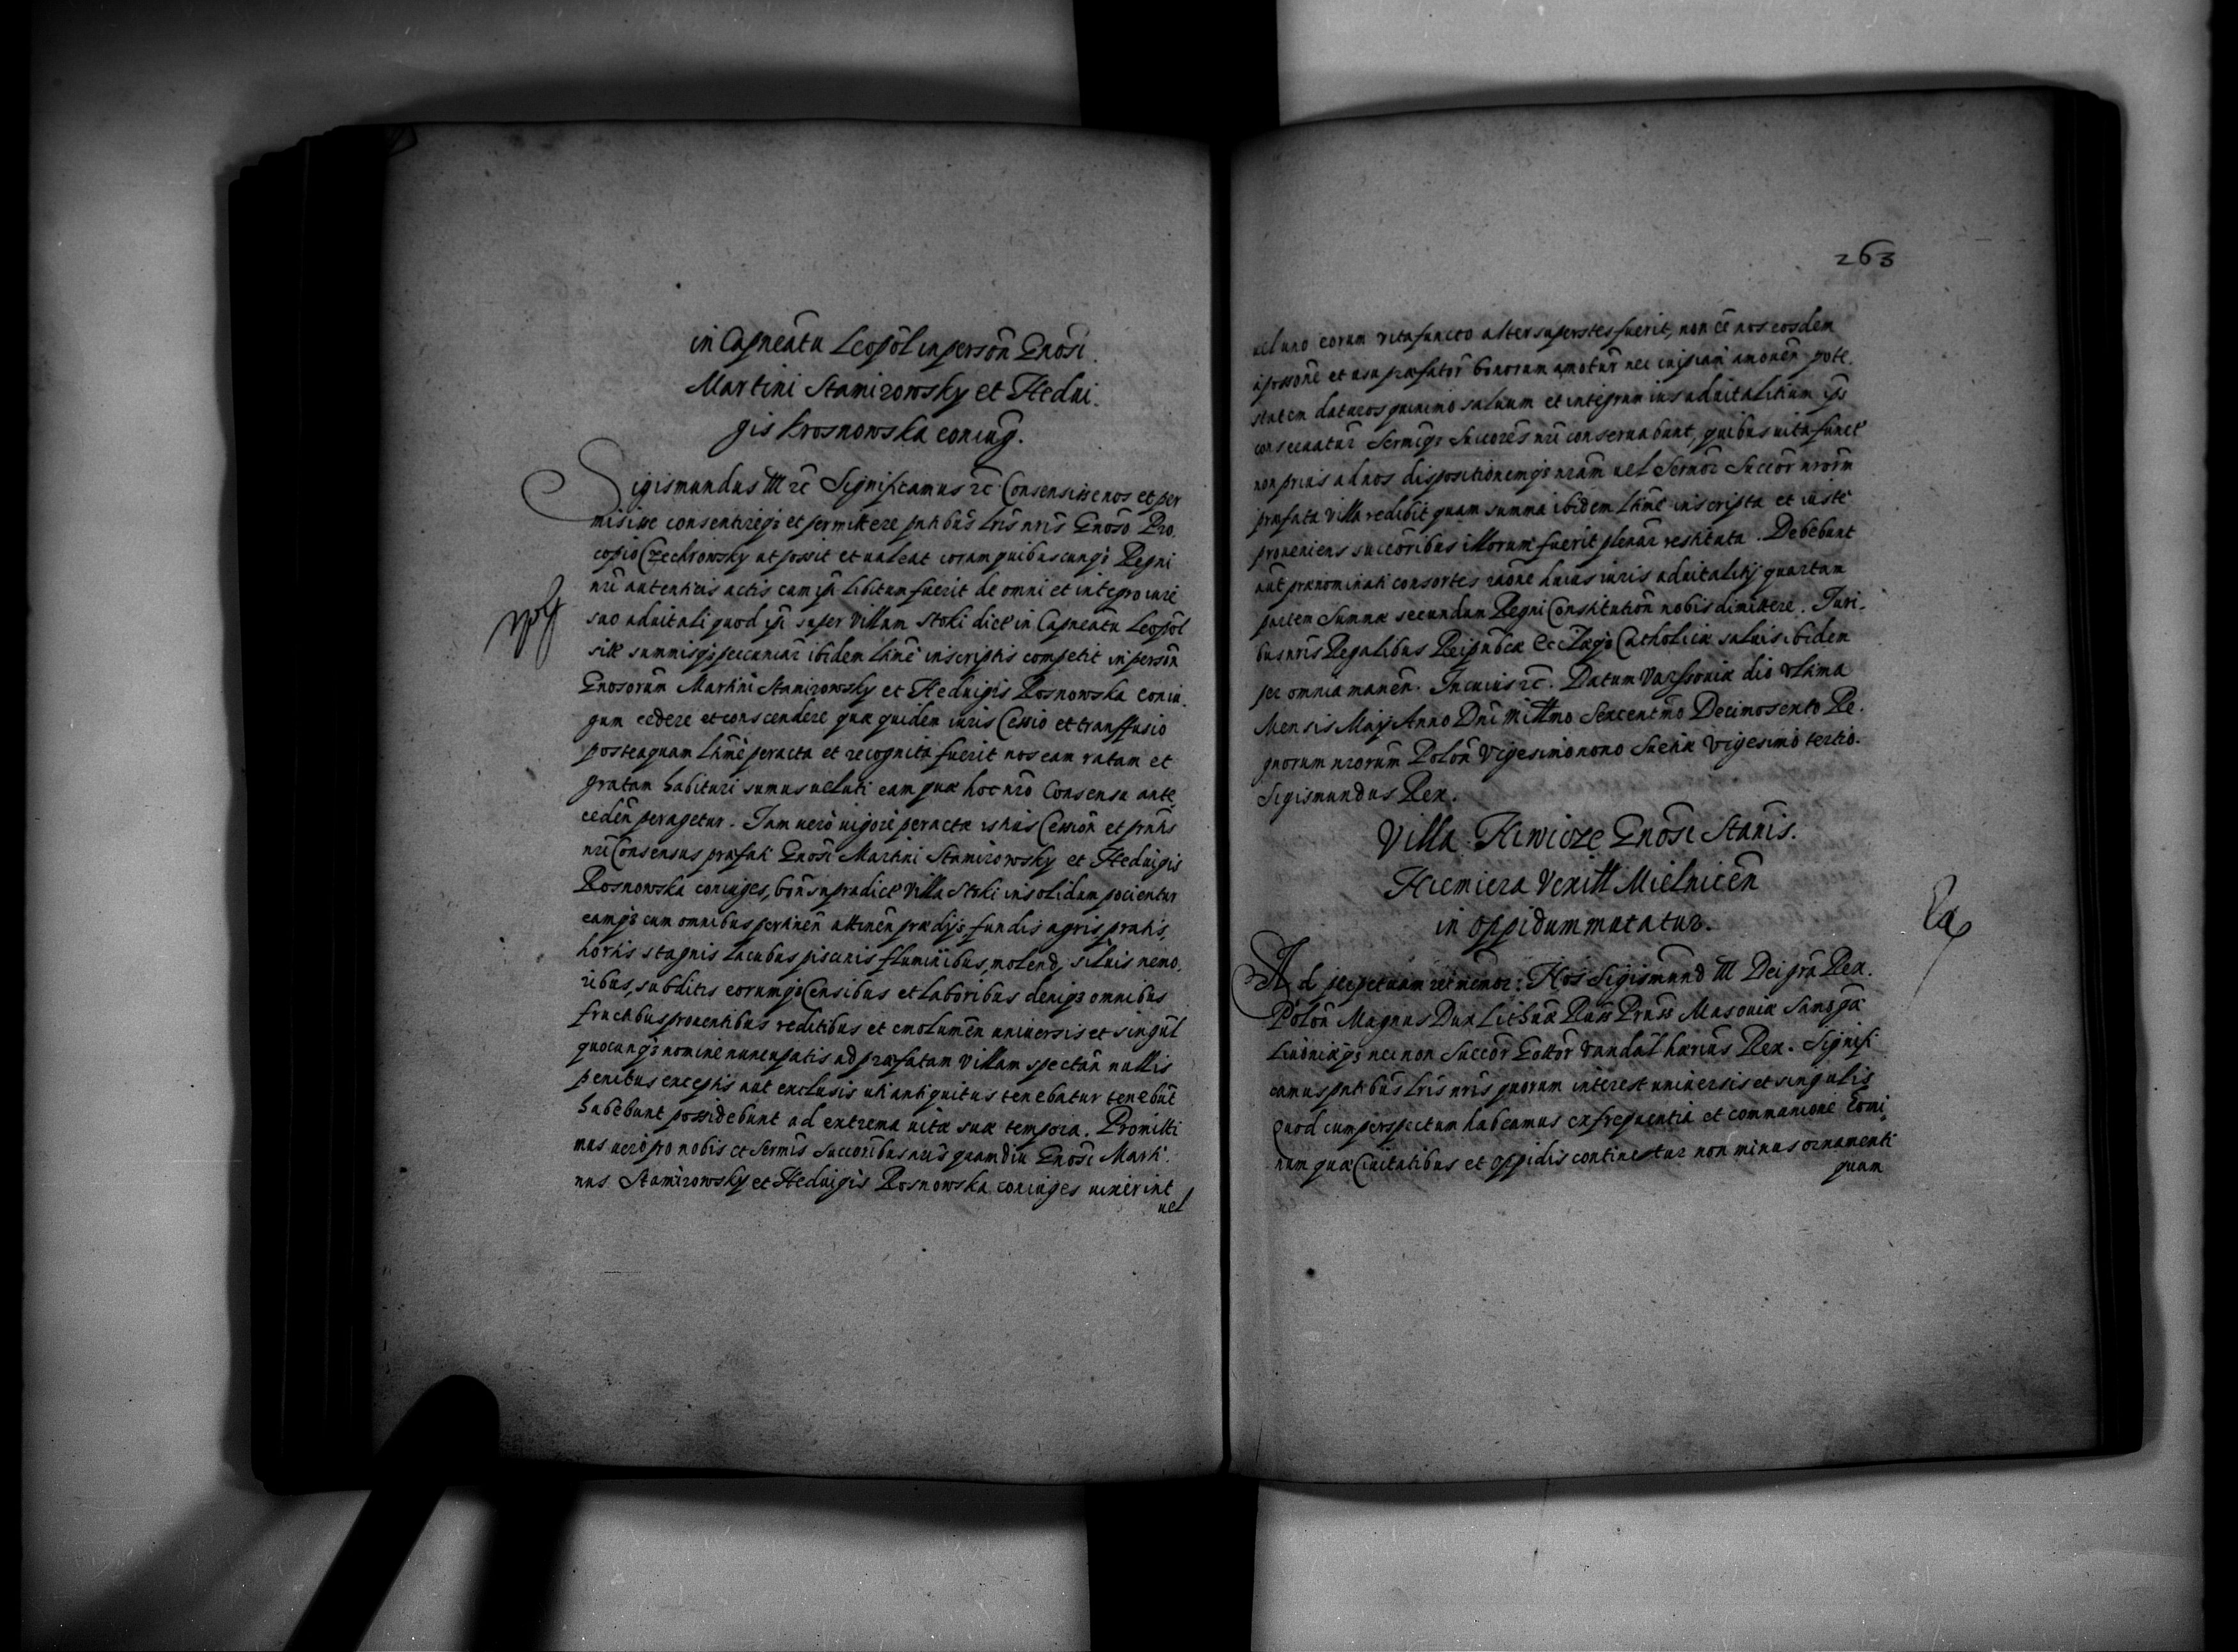 in Capneatu Leopol in person Gnosi
Martini Stamirowsky et Hedui.
gis Krosnowska coniug.
Sigismundus III etc Significamus etc Consensisse nos et per
misisse consentireq3 et permittere pntibus lris nris Gnoso Pro.
copio Czechrowsky ut possit et ualeat coram quibuscunq3 Regni
nri autenticis actis cum ipi libitum fuerit de omni et integro iure
suo aduitali quod ipi super Villam Stoki dict in Capneatu Leopol
sitt summisq3 pecuniar ibidem lttime inscriptis competit in person
Gnosorum Martini Stamirowsky et Heduigis Rosnowska coniu.
gum cedere et conscendere quæ quidem iuris Cessio et transfusio
posteaquam lttime peracta et recognita fuerit nos eam ratam et
gratam habituri sumus ueluti eam quæ hoc nro Consensu ante,
ceden peragetur. Iam uero uigore peractæ istius Cession et pntis
nri Consensus præfati Gnosi Martini Stamirowsky et Heduigis
Rosnowska coniuges, bon supradict Villa Stoki insolidum pocientur
eamq3 cum omnibus pertinen attinen prædijs, fundis agris pratis,
hortis stagnis lacubus piscinis fluminibus, molend, siluis nemo,
ribus, subditis eorumq3 Censibus et laboribus deniq3 omnibus
fructibus prouentibus reditibus et emolumen uniuersis et singul
quocunq3 nomine nuncupatis ad præfatam Villam spectan nullis
penitus exceptis aut exclusis uti antiquitus tenebatur tenebut
habebunt possidebunt ad extrema uitæ suæ tempora. Promitti
mus uero pro nobis et Sermis Succoribus nris quamdiu Gnosi Marti.
nus Stamirowsky et Heduigis Rosnowska coniuges uixerint
uel
263
uel uno eorum vita functo alter superstes fuerit, non ee nos eosdem
a possone et usu præfator bonorum amotur nec cuipiam amouen pote.
statem daturos quinimo saluum et integrum ius aduitalitium ipis
conseruatur Sermiq3 Succores nri conseruabunt, quibus uita funct
non prius ad nos dispositionemq3 nram uel Sermor Succor nrorm
præfata Villa redibit quam summa ibidem lttime inscripta et iuste
proueniens succoribus illorum fuerit plenar restituta. Debebunt
aut prænominati consortes raone huius iuris aduitalitij quartam
partem Summæ secundum Regni Constitution nobis dimittere. Iuri.
bus nris Regalibus Reipubcæ Eccliæq3 Catholicæ saluis ibidem
per omnia manen. In cuius etc. Datum Varssouiæ die Vltima
Mensis Maij Anno Dni Millmo Sexcentmo Decimosexto Re.
gnorum nrorum Polon Vigesimo nono Sueciæ Vigesimo tertio.
Sigismundus Rex.
Villa Gnosi Stanis.
Niemiera Venill Mielnicen
in oppidum mutatur.
Ad perpetuam rei memor: Nos Sigismund III Dei gra Rex.
Polon Magnus Dux Lithuæ Russ Pruss Masouiæ Samogæ
Liuoniæq3 nec non Succor Gottor Vandal hærius Rex. Signifi
camus pntibus lris nris quorum interest uniuersis et singulis
Quod cum perspectum habeamus ex frequentia et communione homi
num quæ Ciuitatibus et oppidis continetur non minus ornamenti
quam